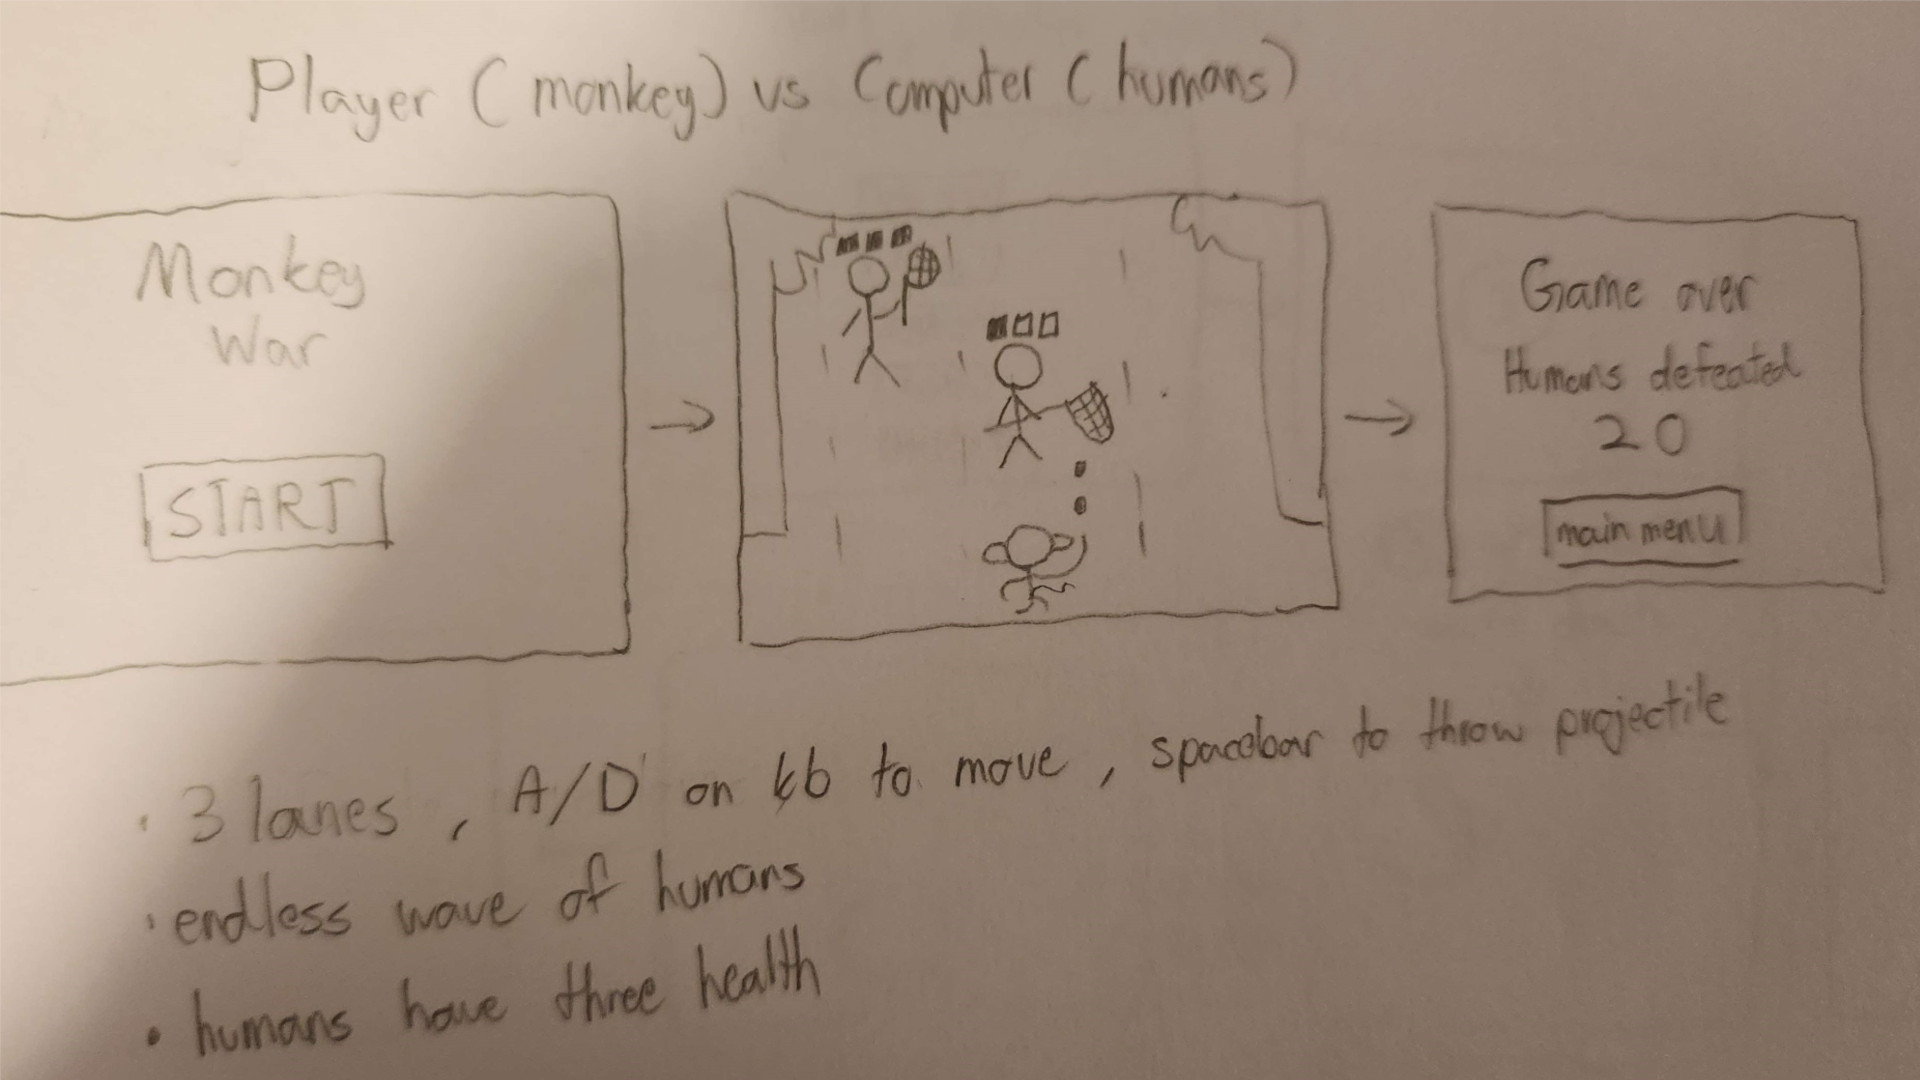 Player (monkey) vs Computer (humans)
Monkey
War
START
Game over
Humans defeated
20
main menu
• 3 lanes, A/D on kb to move, spacebar to throw projectile
• endless wave of humans
• humans have three health